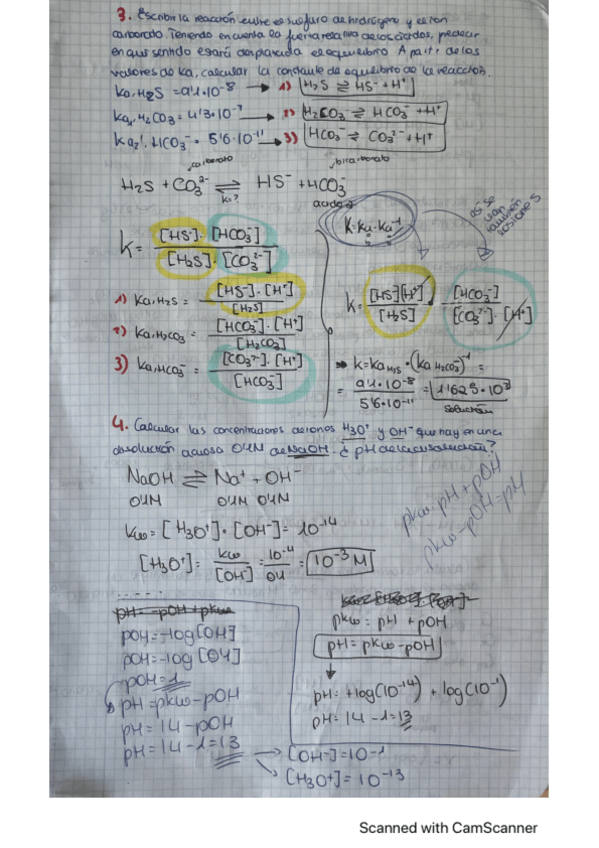 3. Escribir la reacción entre el sulfuro de hidrógeno y el ion
carbonato. Teniendo en cuenta la fuerza relativa de los ácidos, predecir
en que sentido estará desplazado el equilibrio. A partir de los
valores de ka, calcular la constante de equilibrio de la reacción.
ka, H2S = 9'1·10⁻⁸ → 1) H2S ⇌ HS⁻ + H⁺
ka1, H2CO3 = 4'3·10⁻⁷ → 2) H2CO3 ⇌ HCO3⁻ + H⁺
ka2, HCO3⁻ = 5'6·10⁻¹¹ → 3) HCO3⁻ ⇌ CO3²⁻ + H⁺
carbonato bicarbonato
H2S + CO3²⁻ ⇌ HS⁻ + HCO3⁻
k?
k = [HS⁻]·[HCO3⁻] / [H2S]·[CO3²⁻]
k = ka · ka⁻¹
1) Ka, H2S = [HS⁻]·[H⁺] / [H2S]
2) Ka, H2CO3 = [HCO3⁻]·[H⁺] / [H2CO3]
3) Ka, HCO3⁻ = [CO3²⁻]·[H⁺] / [HCO3⁻]
k = [HS⁻][H⁺] / [H2S] · [HCO3⁻] / [CO3²⁻]·[H⁺]
→ k = ka H2S · (ka H2CO3)⁻¹ =
= 9'1·10⁻⁸ / 5'6·10⁻¹¹ = 1'625·10³
solución
4. Calcular las concentraciones de iones H3O⁺ y OH⁻ que hay en una
disolución acuosa 0'1M de NaOH. ¿pH de la disolución?
NaOH ⇌ Na⁺ + OH⁻
0'1M 0'1M 0'1M
kw = [H3O⁺]·[OH⁻] = 10⁻¹⁴
[H3O⁺] = kw / [OH⁻] = 10⁻¹⁴ / 0'1 = 10⁻³ M
pkw = pH + pOH
pkw - pOH = pH
pH = -pOH + pkw
pOH = -log[OH]
pOH = -log[0'1]
pOH = 1
pH = pkw - pOH
pH = 14 - pOH
pH = 14 - 1 = 13
pkw = pH + pOH
pH = pkw - pOH
pH = +log(10⁻¹⁴) + log(10⁻¹)
pH = 14 - 1 = 13
[OH⁻] = 10⁻¹
[H3O⁺] = 10⁻¹³
Scanned with CamScanner